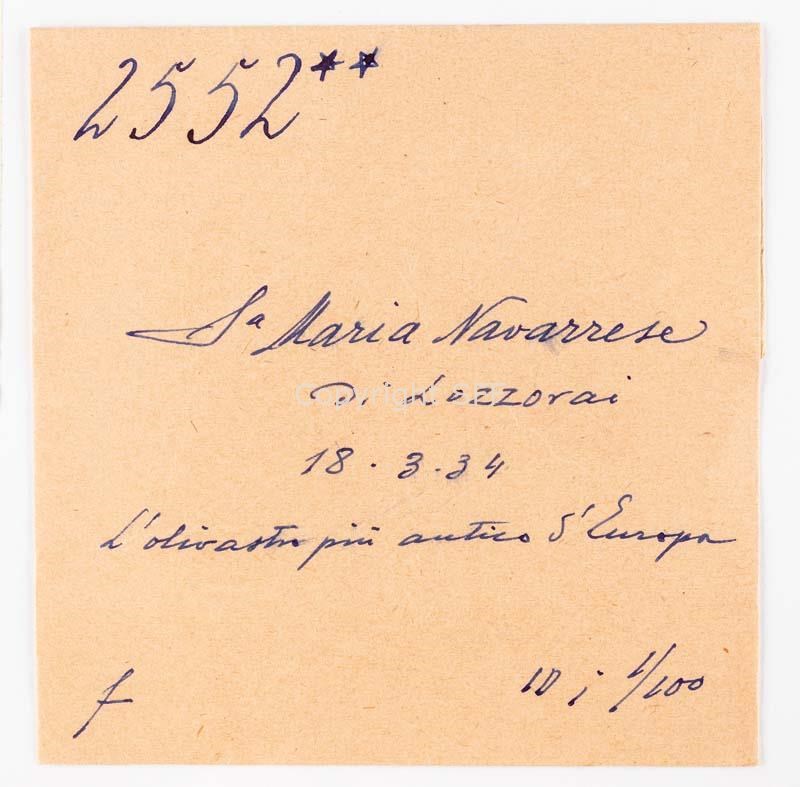 2552**
Sa Maria Navarrese
Di Lozzorai
18.3.34
L'olivastro più antico d'Europa
f 10 ; 1/100